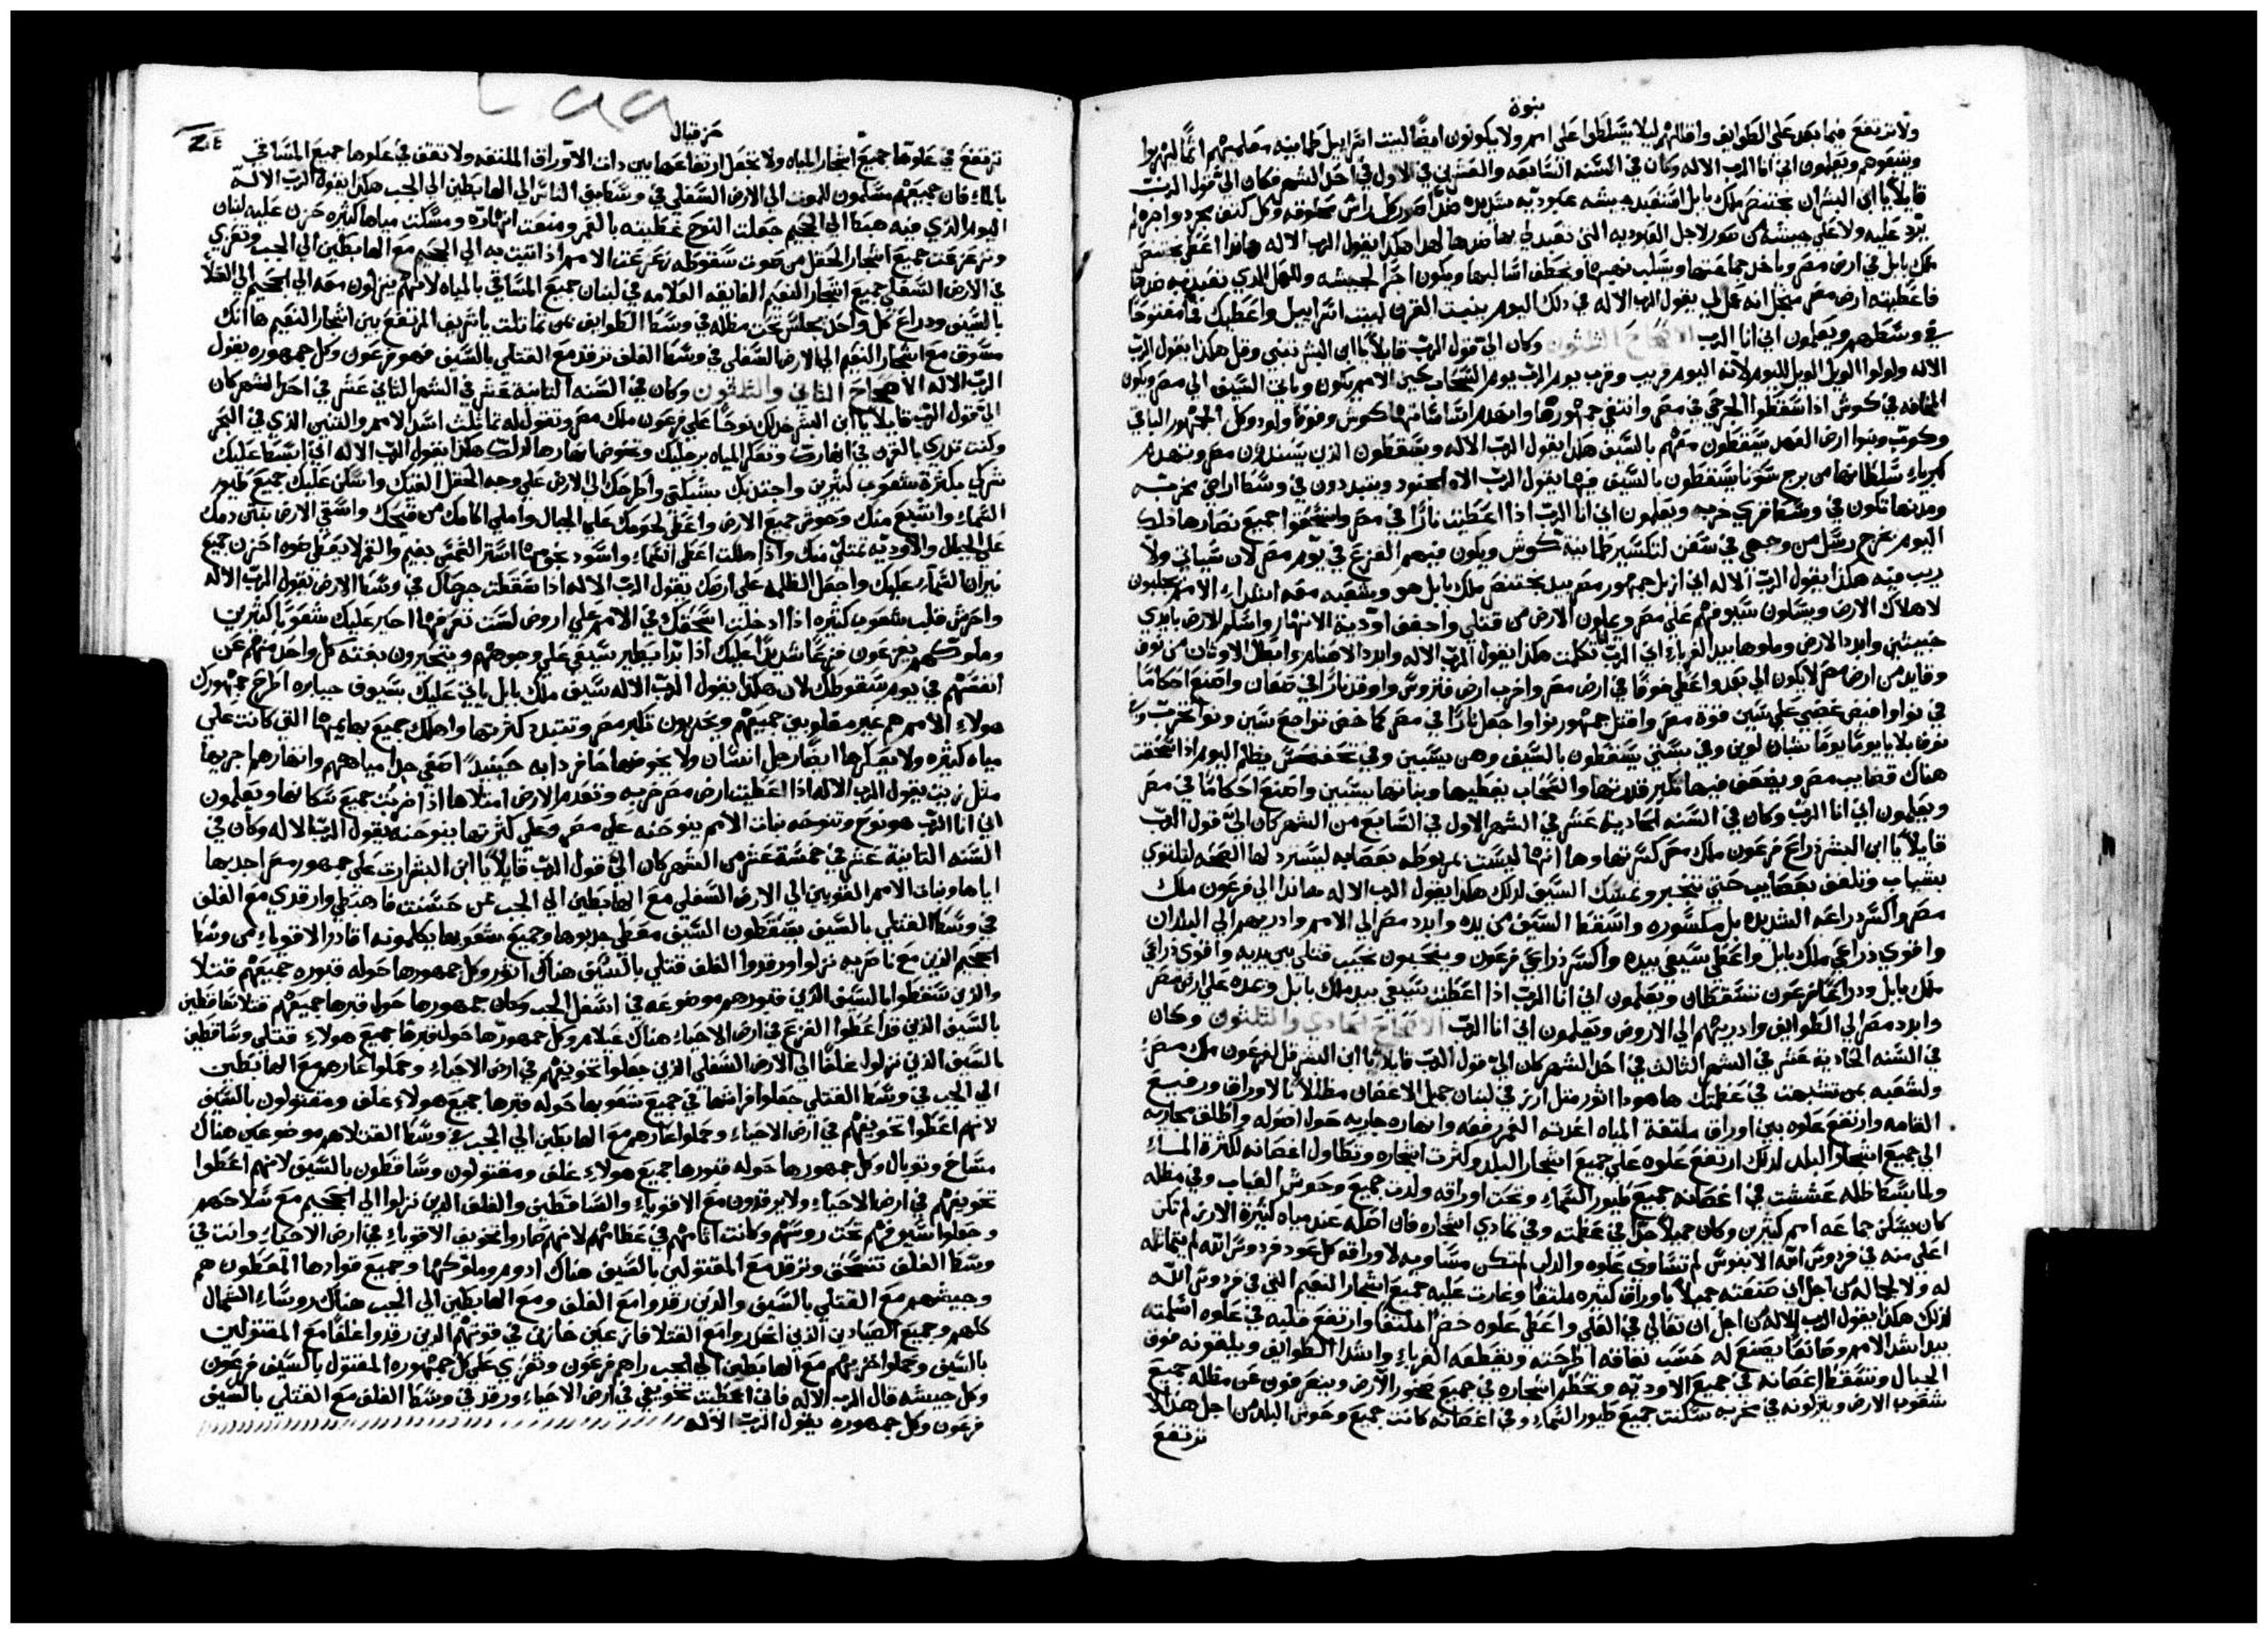 نبوة
ولا ترتفع فيما بعد على الطوايف واقللهم ليلا يتسلطوا على امم ولا يكونون ايضًا لبيت اسراييل طمانينه معلمينهم اثمًا ليهربوا
ويتبعوهم ويعلمون اني انا الرب الاله وكان في السنه السابعه والعشرين في الاول في احد الشهر فكان اليّ قول الربّ
قايلاً يا ابن البشر ان بختنصر ملك بابل استعبد جيشه عبوديّه شديده ضد صور كل راس محلوقه وكل كتف مجرد واجره لم
يردّ عليه ولا على جيشه من صور لاجل العبوديه التي تعبد لي بها ضدها لهذا هكذا يقول الرب الاله هانذا اعطي بختنصر
ملك بابل في ارض مصر وياخذ جماعتها ويسلب نهبها ويخطف اسلابها ويكون اجرًا لجيشه وللعمل الذي تعبد به ضدها
فاعطيته ارض مصر من اجل انه عمل لي يقول الرب الاله في ذلك اليوم ينبت القرن لبيت اسراييل واعطيك فمًا مفتوحًا
في وسطهم ويعلمون اني انا الرب الاصحاح الثلثون وكان اليّ قول الربّ قايلاً يا ابن البشر تنبى وقل هكذا يقول الربّ
الاله ولولوا الويل الويل لليوم لانه اليوم قريب وقرب يوم الربّ يوم السحاب حين الامم يكون وياتي السيف الى مصر ويكون
المخافه في كوش اذا سقطوا الجرحى في مصر وانتفى جمهورها وانهدم اساساتها كوش وفوط ولود وكل الجمهور الباقي
وكوب وبنوا ارض العهد يسقطون معهم بالسيف هكذا يقول الربّ الاله ويسقطون الذين يسندون مصر وينهدم
كبرياء سلطانها من برج سونا يسقطون بالسيف فيها يقول الربّ الاه الجنود ويتبددون في وسط اراضي مخربه
ومدنها تكون في وسط قرى خربه ويعلمون اني انا الربّ اذا اعطيت نارًا في مصر وانسحقوا جميع نصارها ذلك
اليوم تخرج رسل من وجهي في سفن لتكسير طمانينة كوش ويكون فيهم الفزع في يوم مصر لان سياتي ولا
ريب فيه هكذا يقول الربّ الاله اني ازيل جمهور مصر بيد بختنصر ملك بابل هو وشعبه معه اشداء الامم يجلبون
لاهلاك الارض ويسلون سيوفهم على مصر ويملون الارض من قتلى واجفف اودية الانهار واسلم الارض بايدي
خبيثين وابدد الارض وملوها بيد الغرباء انا الربّ تكلمت هكذا يقول الربّ الاله وابدد الاصنام وابطل الاوثان من نوف
وقايد من ارض مصر لا يكون الى بعد واعطي خوفًا في ارض مصر واخرب ارض فتروس واوقد نارًا في صفان واصنع احكامًا
في نوا وافيض غضبي على سين قوة مصر واقتل جمهور نوا واجعل نارًا في مصر كما خض تواجع سين ونوا تخرب وفي
نوف بلايا يومًا يومًا شبان لوبن وفي بستي يسقطون بالسيف وهن يسبين وفي تحفنحس يظلم اليوم اذا سحقت
هناك قضايب مصر ويضعف فيها تكبر قدرتها والسحاب يغطيها وبناتها يسبين واصنع احكامًا في مصر
ويعلمون اني انا الربّ وكان في السنه الحادية عشر في الشهر الاول في السابع من الشهر كان اليّ قول الربّ
قايلاً يا ابن البشر ذراع فرعون ملك مصر كسرتها وها انها ليست بمربوطه بعصابه ليسترد لها الصحه لتلتوي
بشباب وتلفف بعصايب حتى تنجبر وتمسك السيف لذلك هكذا يقول الرب الاله هانذا الى فرعون ملك
مصر واكسر ذراعه الشديده بل مكسوره واسقط السيف من يده وابدد مصر الى الامم واذريهم الى البلدان
واقوي ذراعي ملك بابل واعطي سيفي بيده واكسر ذراعي فرعون وينحبون نحيب قتلى بين يديه واقوي ذراعي
ملك بابل وذراعا فرعون تسقطان ويعلمون اني انا الربّ اذا اعطيت سيفي بيد ملك بابل ومده على ارض مصر
وابدد مصر الى الطوايف واذريهم الى الاروض ويعلمون اني انا الربّ الاصحاح الحادي والثلثون وكان
في السنه الحادية عشر في الشهر الثالث في احد الشهر كان اليّ قول الربّ قايلاً يا ابن البشر قل لفرعون ملك مصر
ولشعبه بمن تشبهت في عظمتك هاهوذا اثور مثل ارز في لبنان جميل الاغصان مظللاً بالاوراق ورفيع
القامه وارتفع علوه بين اوراق ملتفة المياه اغذته الغمر رفعه وانهاره جاريه حول اصوله واطلق مجاريه
الى جميع اشجار البلد لذلك ارتفع علوه على جميع اشجار البلد وكثرت اشجاره وتطاول اغصانه لكثرة الماء
ولما بسط ظله عششت في اغصانه جميع طيور السماء وتحت اوراقه ولدت جميع وحوش الغياب وفي مظله
كان يسكن جماعه امم كثيرين وكان جميلاً جدًّا في عظمته وفي تمادي اشجاره فان اصله عند مياه كثيرة الارز لم تكن
اعلى منه في فردوس الله الابنوس لم تساوى علوه والدلب لم تكن مساويه لاوراقه كل عود فردوس الله لم يتماثله
له ولا لجماله من اجل اني صنعته جميلاً باوراق كثيره ملتفًا وغارت عليه جميع اشجار النعيم التي في فردوس الله
لذلك هكذا يقول الرب الاله من اجل ان تعالى في العلى واعطى علوه خضرًا ملتفًا وارتفع قلبه في علوه اسلمته
بيد اشد الامم وصانعًا يصنع له حسب نفاقه اطرحته ويقطعه الغرباء واشد الطوايف ويلقونه فوق
الجبال وتسقط اغصانه في جميع الاوديه وتحطم اشجاره في جميع صخور الارض ويتفرقون عن مظله جميع
شعوب الارض ويتركونه في مخربه سكنت جميع طيور السماء وفي اغصانه كانت جميع وحوش البلد من اجل هذا لا
ترتفع
حزقيال
ترتفع في علوها جميع اشجار المياه ولا تجعل ارتفاعها بين ذات الاوراق الملتفه ولا تقف في علوها جميع المساقي
بالماء فان جميعهم مسلمون للموت الى الارض السفلى في وسط بني الناس الى الهابطين الى الجب هكذا يقول الربّ الاله
اليوم الذي فيه هبط الى الجحيم جعلت النوح غطيته بالغمر ومنعت انهاره ومسكت مياها كثيره حزن عليه لبنان
وتزعزعت جميع اشجار الحقل من صوت سقوطه زعزعت الامم اذ اتيت به الى الجحيم مع الهابطين الى الجب وتعزي
في الارض السفلى جميع اشجار النعيم الفايقه العلامه في لبنان جميع المساقي بالمياه لانهم ينزلون معه الى الجحيم الى القتلا
بالسيف وذراع كل واحد يجلس تحت مظله في وسط الطوايف بمن تماثلت يا شريف المرتفع بين اشجار النعيم ها انك
مسوق مع اشجار النعيم الى الارض السفلى في وسط الغلف ترقد مع القتلى بالسيف فهو فرعون وكل جمهوره يقول
الربّ الاله الاصحاح الثاني والثلثون وكان في السنه الثانية عشر في الشهر الثاني عشر في احد الشهر كان
اليّ قول الربّ قايلاً يا ابن البشر خذ لك نوحًا على فرعون ملك مصر وتقول له تماثلت اسد الامم والتنين الذي في البحر
وكنت تذري بالقرن في انهارك وتعكر المياه برجليك وتخوض انهارها لذلك هكذا يقول الربّ الاله اني ابسط عليك
شركي بكثرة شعوب كثيرين واجتذبك بشبكتي واطرحك الى الارض على وجه الحقل القيك واسكن عليك جميع طيور
السماء واشبع منك وحوش جميع الارض واعطي لحومك على الجبال واملي اكامك من قيحك واسقي الارض بنتن دمك
على الجبل والاوديه تمتلئ منك واذا هلكت اغطي السماء واسود نجومها استر الشمس بغيم والقمر لا يعطي ضوه احزن جميع
نيران السماء عليك واجعل الظلمه على ارضك يقول الربّ الاله اذا سقطت جرحاك في وسط الارض يقول الربّ الاله
واحزن قلب شعوب كثيره اذا ادخلت انسحقك في الامم على اروض لست تعرفها احير عليك شعوبًا كثيرين
وملوكهم يفزعون فزعًا شديدًا عليك اذا بدا يطير سيفي على وجوههم ويتحيرون بغته كل واحد منهم عن
انفسهم في يوم سقوطك لان هكذا يقول الربّ الاله سيف ملك بابل ياتي عليك بسيوف جبابره اطرح جمهورك
هولاء الامم هم غير مغلوبين جميعهم ويخربون تكبر مصر وتتبدد كثرتها واهلك جميع بهايمها التي كانت على
مياه كثيره ولا يعكرها ايضًا رجل انسان ولا يخوضها حافر دابه حينيذٍ اصفي جدا مياههم وانهارهما جريها
مثل زيت يقول الرب الاله اذا اعطيت ارض مصر خربه وتعدم الارض امتلاها اذا ضربت جميع سكانها ويعلمون
اني انا الربّ هو نوح وتنوحه بنات الامم ينوحنه على مصر وعلى كثرتها ينوحنه يقول الربّ الاله وكان في
السنه الثانية عشر في خمسة عشر من الشهر كان اليّ قول الربّ قايلاً يا ابن البشر ارث على جمهور مصر اجذبها
اياها وبنات الامم القويين الى الارض السفلى مع الهابطين الى الجب عن حسنت فاهبطي وارقدي مع الغلف
في وسط القتلى بالسيف يسقطون السيف معطى جذبوها وجميع شعوبها يكلمونه اقادر الاقوياء من وسط
الجحيم الذين مع ناصريه نزلوا ورقدوا الغلف قتلى بالسيف هناك اثور وكل جمهورها حوله قبوره جميعهم قتلا
والذين سقطوا بالسيف الذين قبورهم موضوعه في اسفل الجب وكان جمهورها حول قبرها جميعهم قتلا ساقطين
بالسيف الذين قد اعطوا الفزع في ارض الاحياء هناك عيلام وكل جمهورها حوله قبرها جميع هولاء قتلى وساقطين
بالسيف الذين نزلوا غلفًا الى الارض السفلى الذين جعلوا تخويفهم في ارض الاحياء وحملوا عارهم مع الهابطين
الى الجب في وسط القتلى جعلوا فراشها في جميع شعوبها حوله قبرها جميع هولاء غلف ومقتولون بالسيف
لانهم اعطوا تخويفهم في ارض الاحياء وحملوا عارهم مع الهابطين الى الجب في وسط القتلا هم موضوعين هناك
مشاخ وتوبال وكل جمهورها حوله قبورها جميع هولاء غلف ومقتولون وساقطون بالسيف لانهم اعطوا
تخويفهم في ارض الاحياء ولا يرقدون مع الاقوياء والساقطين والغلف الذين نزلوا الى الجحيم مع سلاحهم
وجعلوا سيوفهم تحت روسهم وكانت اثامهم في عظامهم لانهم صاروا تخويف الاقوياء في ارض الاحياء وانت في
وسط الغلف تنسحق وترقد مع المقتولين بالسيف هناك ادوم وملوكها وجميع قوادها المعطون هم
وجيشهم مع القتلى بالسيف والذين رقدوا مع الغلف ومع الهابطين الى الجب هناك روساء الشمال
كلهم وجميع الصيادين الذين انحدروا مع القتلا فازعين خازين في قوتهم الذين رقدوا غلفًا مع المقتولين
بالسيف وحملوا خزيهم مع الهابطين الى الجب راهم فرعون وتعزي على كل جمهوره المقتول بالسيف فرعون
وكل جيشه قال الرب الاله فاني اعطيت تخويفي في ارض الاحياء ورقد في وسط الغلف مع القتلى بالسيف
فرعون وكل جمهوره يقول الربّ الاله